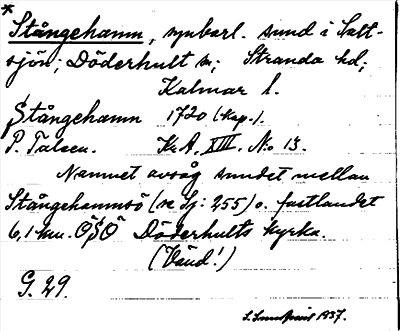 *
Stångehamn, synbarl. sund i Salt-
sjön; Döderhult sn; Stranda hd;
Kalmar l.
Stångehamn 1720 (Kap.).
P. K. A. XIII. No 13.
Namnet avsåg sundet mellan
Stångehamnsö (se Sj: 255) o. fastlandet
6,1 km. ÖSÖ Döderhults kyrka.
(Vänd!)
G. 29.
1937.